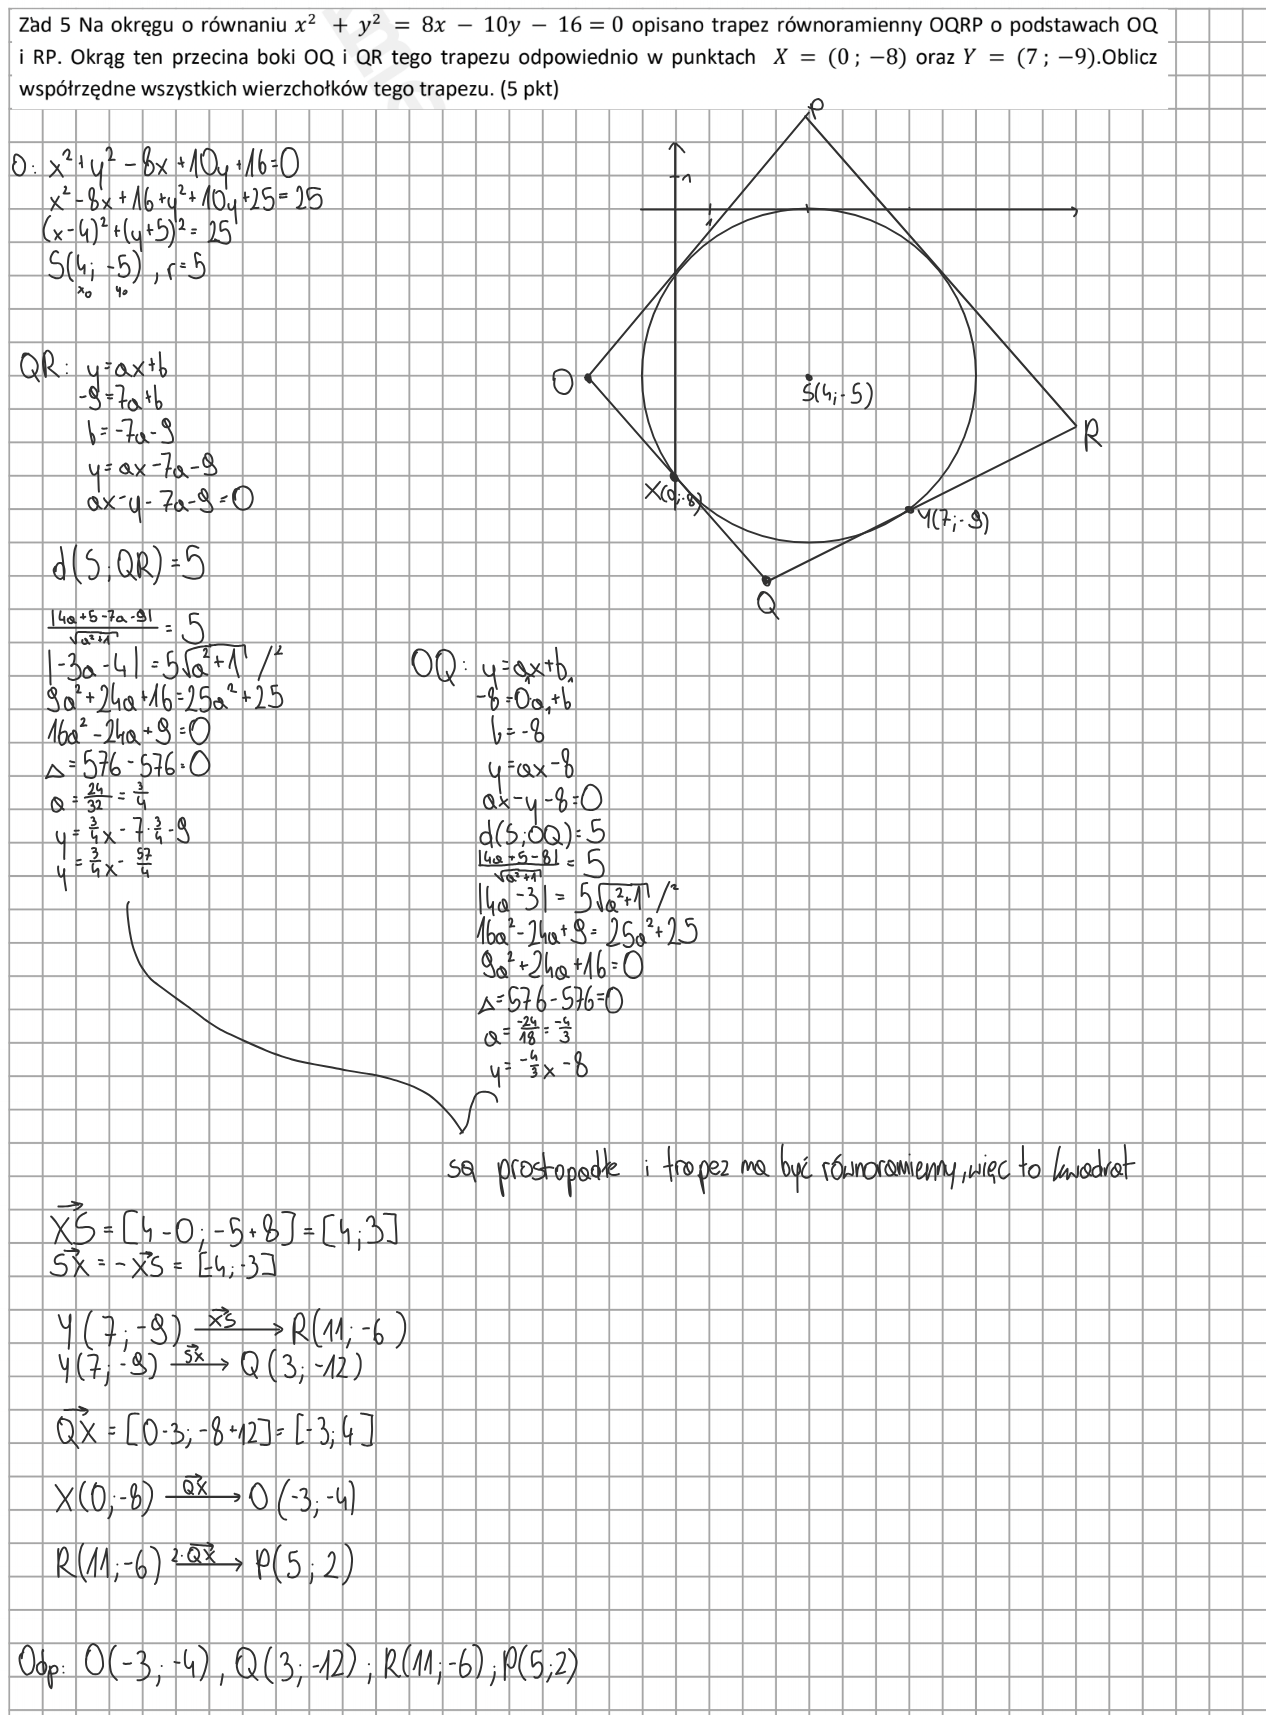 Zad 5 Na okręgu o równaniu x² + y² = 8x − 10y − 16 = 0 opisano trapez równoramienny OQRP o podstawach OQ
i RP. Okrąg ten przecina boki OQ i QR tego trapezu odpowiednio w punktach X = (0 ; −8) oraz Y = (7 ; −9).Oblicz
współrzędne wszystkich wierzchołków tego trapezu. (5 pkt)
O: x²+y²-8x+10y+16=0
x²-8x+16+y²+10y+25=25
(x-4)²+(y+5)²=25
S(4; -5), r=5
x₀ y₀
P
1
1
O
S(4;-5)
R
X(0;-8)
Y(7;-9)
Q
QR: y=ax+b
-9=7a+b
b=-7a-9
y=ax-7a-9
ax-y-7a-9=0
d(S;QR)=5
|4a+5-7a-9|/√(a²+1) = 5
|-3a-4|=5√(a²+1) /²
9a²+24a+16=25a²+25
16a²-24a+9=0
Δ=576-576=0
a=24/32=3/4
y=3/4x-7·3/4-9
y=3/4x-57/4
OQ: y=a₁x+b₁
-8=0a₁+b
b=-8
y=ax-8
ax-y-8=0
d(S;OQ)=5
|4a+5-8|/√(a²+1) = 5
|4a-3|=5√(a²+1) /²
16a²-24a+9=25a²+25
9a²+24a+16=0
Δ=576-576=0
a=-24/18=-4/3
y=-4/3x-8
są prostopadłe i trapez ma być równoramienny, więc to kwadrat
XS→=[4-0; -5+8]=[4;3]
SX→=-XS→=[-4;-3]
Y(7;-9) XS→ R(11;-6)
Y(7;-9) SX→ Q(3;-12)
QX→=[0-3; -8+12]=[-3;4]
X(0;-8) QX→ O(-3;-4)
R(11;-6) 2·QX→ P(5;2)
Odp: O(-3;-4), Q(3;-12); R(11;-6); P(5;2)